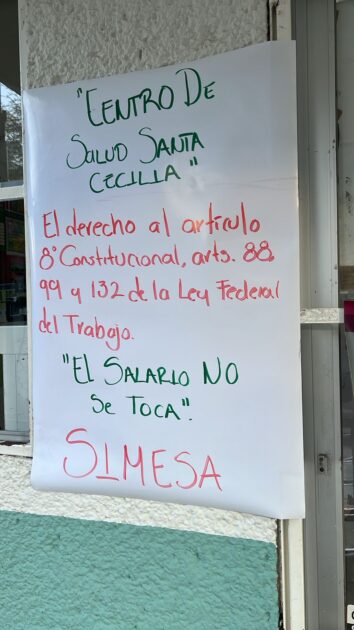 "CENTRO DE
SALUD SANTA
CECILIA"
El derecho al artículo
8° Constitucional, arts. 88,
99 y 132 de la Ley Federal
del Trabajo.
"EL SALARIO NO
SE TOCA".
SIMESA